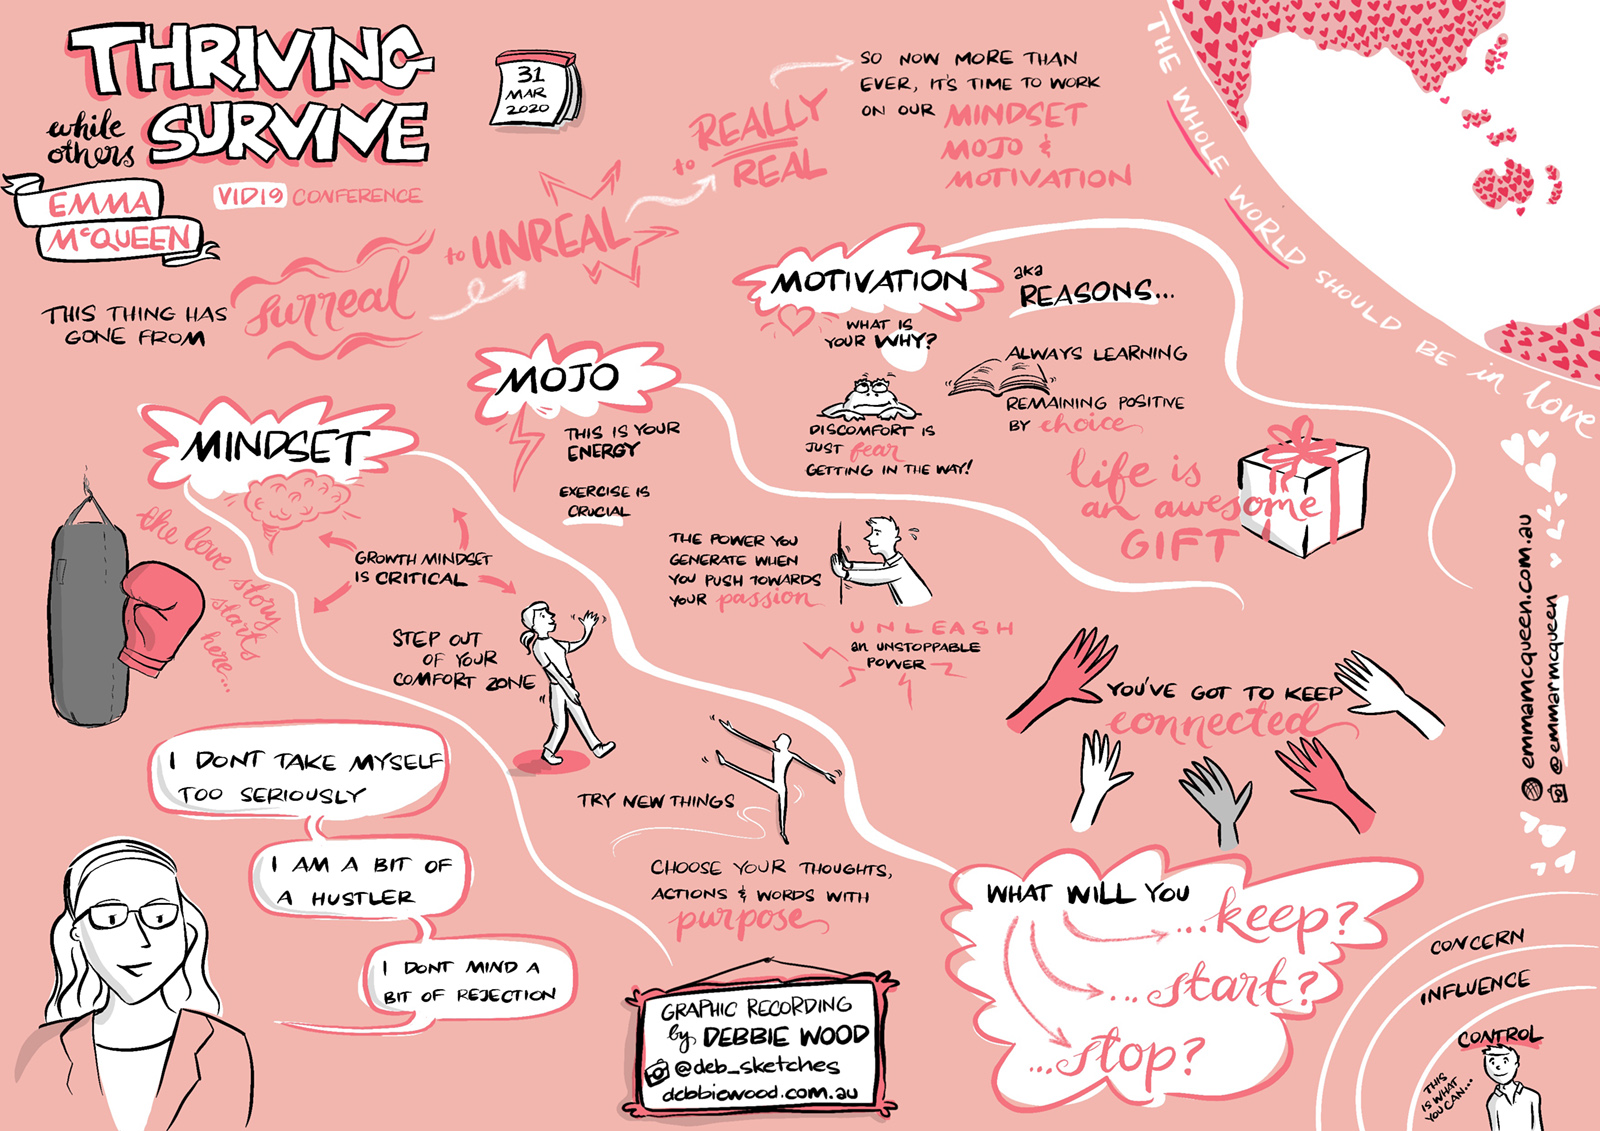 THRIVING
while others
SURVIVE
EMMA
McQUEEN
VID19 CONFERENCE
31
MAR
2020
THIS THING HAS
GONE FROM
surreal
to UNREAL
to REALLY
REAL
SO NOW MORE THAN
EVER, IT'S TIME TO WORK
ON OUR MINDSET
MOJO &
MOTIVATION
THE WHOLE WORLD SHOULD BE in love
MINDSET
the love story
starts
here...
GROWTH MINDSET
IS CRITICAL
STEP OUT
OF YOUR
COMFORT ZONE
TRY NEW THINGS
CHOOSE YOUR THOUGHTS,
ACTIONS & WORDS WITH
purpose
MOJO
THIS IS YOUR
ENERGY
EXERCISE IS
CRUCIAL
THE POWER YOU
GENERATE WHEN
YOU PUSH TOWARDS
YOUR passion
UNLEASH
an UNSTOPPABLE
POWER
MOTIVATION
aka
REASONS...
WHAT IS
YOUR WHY?
DISCOMFORT IS
JUST fear
GETTING IN THE WAY!
ALWAYS LEARNING
REMAINING POSITIVE
BY choice
life is
an awesome
GIFT
YOU'VE GOT TO KEEP
connected
emmamcqueen.com.au
@emmarmcqueen
I DONT TAKE MYSELF
TOO SERIOUSLY
I AM A BIT OF
A HUSTLER
I DONT MIND A
BIT OF REJECTION
GRAPHIC RECORDING
by DEBBIE WOOD
@deb_sketches
debbiewood.com.au
WHAT WILL YOU
...keep?
...start?
...stop?
CONCERN
INFLUENCE
CONTROL
THIS
IS WHAT
YOU CAN...